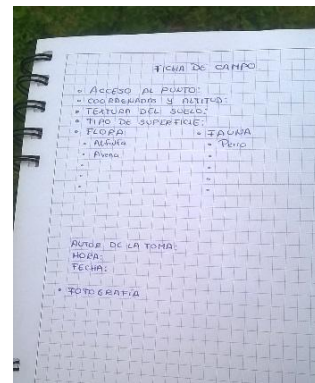 FICHA DE CAMPO
• ACCESO AL PUNTO:
• COORDENADAS Y ALTITUD:
• TEXTURA DEL SUELO:
• TIPO DE SUPERFICIE:
• FLORA:
• Alfalfa
• Avena
• FAUNA
• Perro
AUTOR DE LA TOMA:
HORA:
FECHA:
• FOTOGRAFÍA